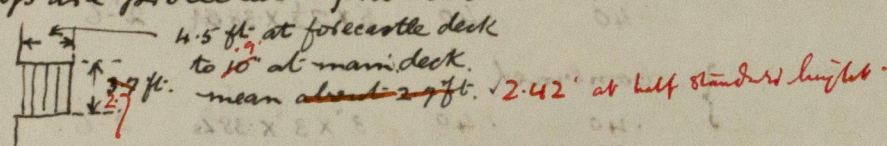 4.5 ft. at forecastle deck
to 10" 9 at main deck.
3.7 ft. 2.7 mean about 2.9 ft. ✓ 2.42' at half standard height.